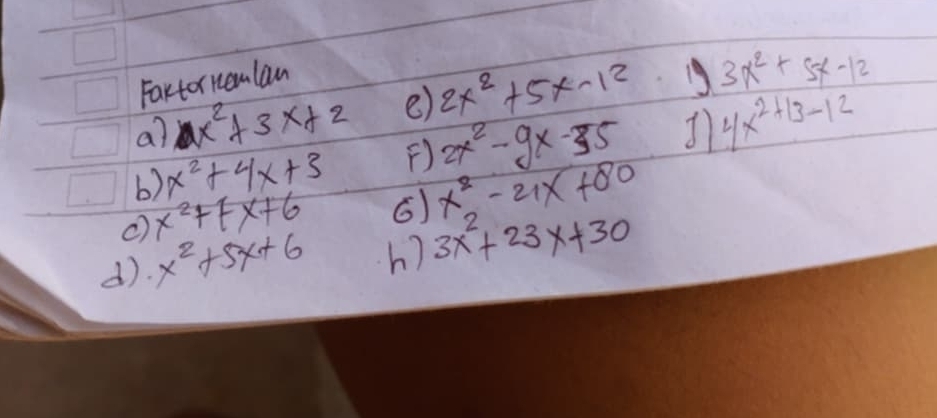 Faktorkanlan
a) x² + 3x + 2
b) x² + 4x + 3
c) x² + 7x + 6
d). x² + 5x + 6
e) 2x² + 5x - 12
F) 2x² - 9x - 35
G) x² - 21x + 80
h) 3x² + 23x + 30
i) 3x² + 5x - 12
J) 4x² + 13 - 12